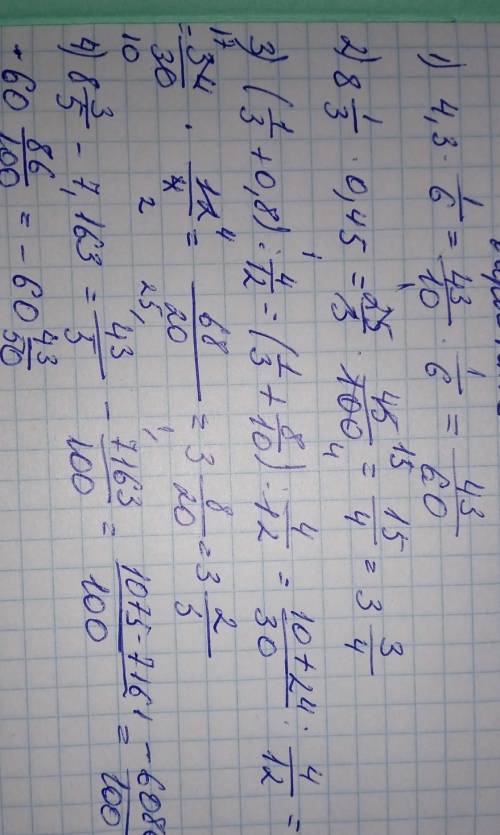 1) 4,3 · 1/6 = 43/10 · 1/6 = 43/60
2) 8 1/3 · 0,45 = 25/3 · 45/100 = 15/4 = 3 3/4
3) (1/3 + 0,8) : 4/12 = (1/3 + 8/10) : 4/12 = 10+24/30 : 4/12 =
= 34/30 · 12/4 = 68/20 = 3 8/20 = 3 2/5
4) 8 3/5 - 7,163 = 43/5 - 7163/100 = 1075-7161/100 = -608
100
- 60 86/100 = - 60 43/50